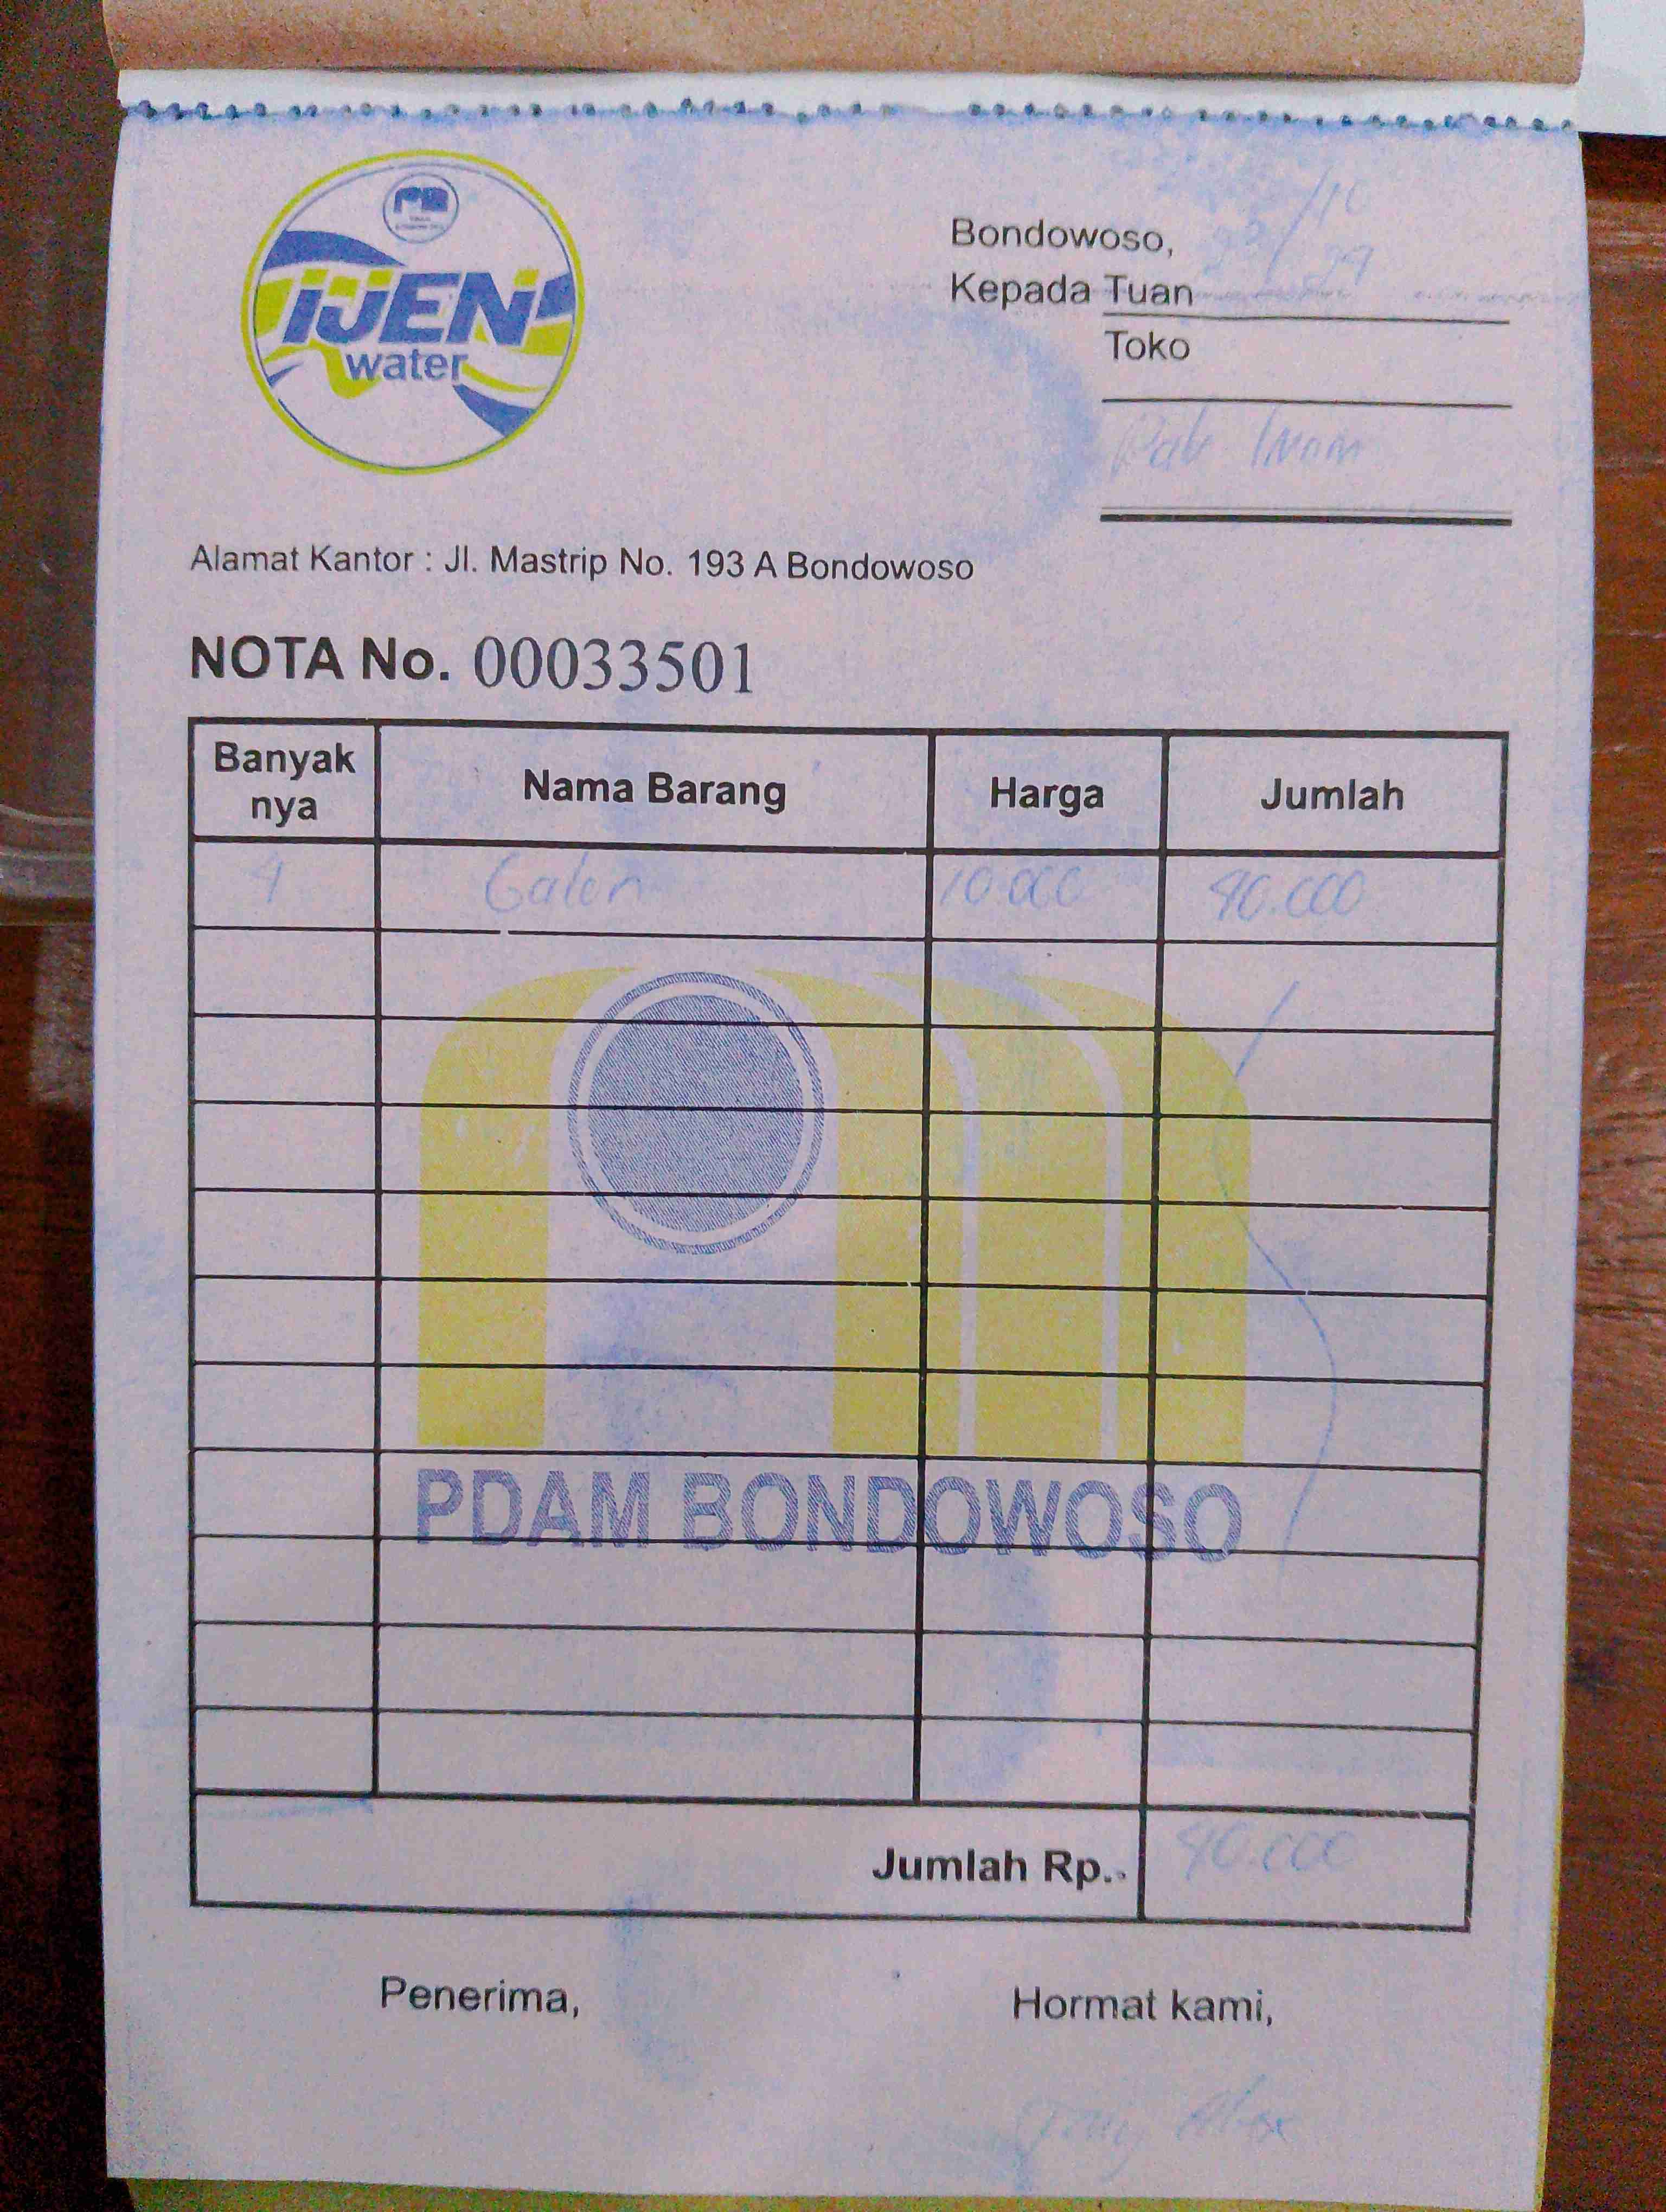 IJEN
water
Bondowoso, /10
Kepada Tuan
Toko
Pak Imam
Alamat Kantor : Jl. Mastrip No. 193 A Bondowoso
NOTA No. 00033501
Banyak nya Nama Barang Harga Jumlah
4 Galon 10.000 40.000
PDAM BONDOWOSO
Jumlah Rp.. 40.000
Penerima, Hormat kami,